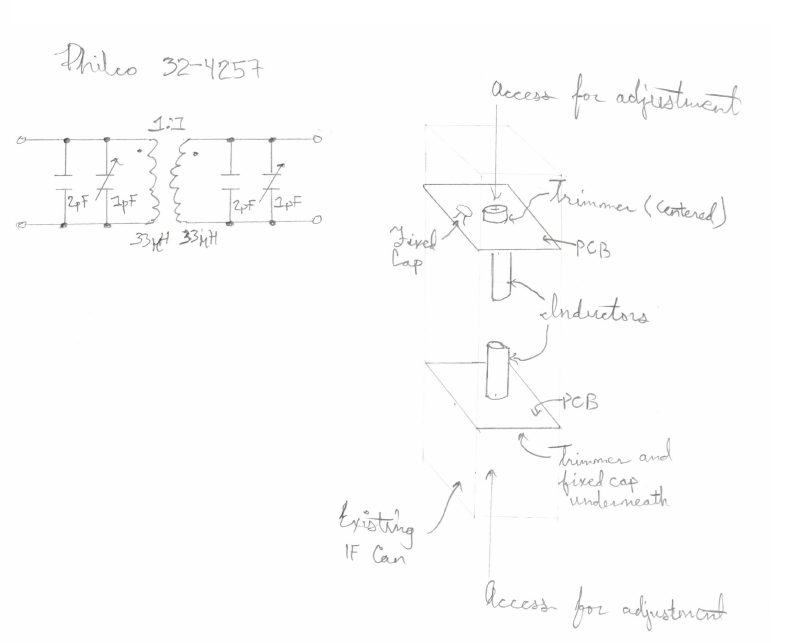 Philco 32-4257
1:1
2pF
1pF
2pF
1pF
33µH 33µH
Access for adjustment
Trimmer (centered)
Fixed
Cap
PCB
Inductors
PCB
Trimmer and
fixed cap
underneath
Existing
IF Can
Access for adjustment